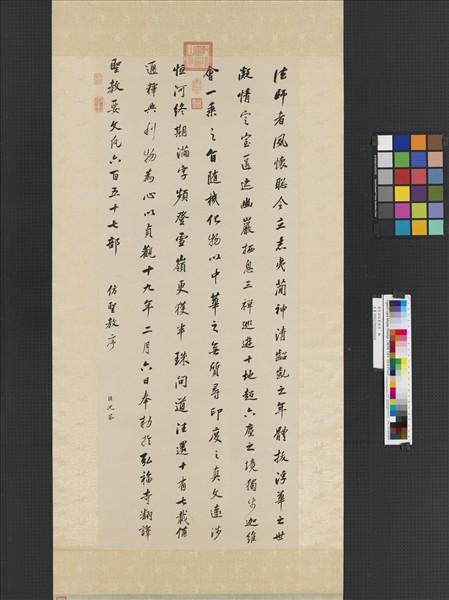 法師者夙懷聡令立志夷簡神清齠齓之年體拔浮華之世
凝情定室匿迹幽巖栖息三禅廵遊十地超六塵之境獨步迦維
會一乗之旨隨機化物以中華之無質尋印度之真文遠涉
恒河終期滿字頻登雪嶺更獲半珠問道往還十有七載備
通釋典利物為心以貞觀十九年二月六日奉勅於弘福寺翻譯
聖教要文凡六百五十七部
仿聖教序
臣沈荃